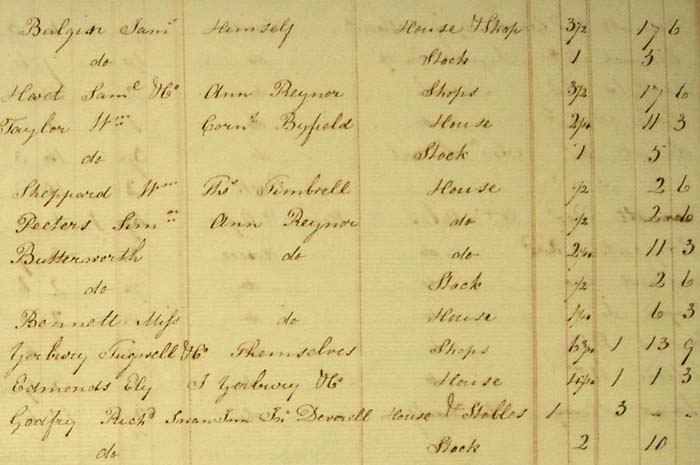 Bulgin Saml Himself House & Shop 3 1/2 17 6
do Stock 1 5
Havet Saml & Co Ann Reynor Shops 3 1/2 17 6
Taylor Wm Corns Byfield House 2 1/4 11 3
do Stock 1 5
Sheppard Wm Thos Timbrell House 1/2 2 6
Peeters Simn Ann Reynor do 1/2 2 6
Butterworth do do 2 1/4 11 3
do Stock 1/2 2 6
Bennett Miss do House 1 1/4 6 3
Yerbury Tugwell & Co Themselves Shops 6 3/4 1 13 9
Edmonds Ely J Yerbury & Co House 4 1/4 1 1 3
Godfry Richd Swan Inn Jno Deverell House & Stables 1 3 - -
do Stock 2 10